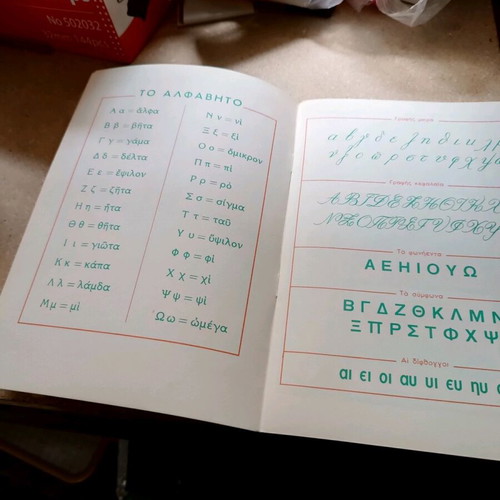 No 502032
ΤΟ ΑΛΦΑΒΗΤΟ
Α α = ἄλφα
Β β = βῆτα
Γ γ = γάμα
Δ δ = δέλτα
Ε ε = ἔψιλον
Ζ ζ = ζῆτα
Η η = ἦτα
Θ θ = θῆτα
Ι ι = γιῶτα
Κ κ = κάπα
Λ λ = λάμδα
Μ μ = μὶ
Ν ν = νὶ
Ξ ξ = ξὶ
Ο ο = ὄμικρον
Π π = πὶ
Ρ ρ = ρὸ
Σ σ = σίγμα
Τ τ = ταῦ
Υ υ = ὕψιλον
Φ φ = φὶ
Χ χ = χὶ
Ψ ψ = ψὶ
Ω ω = ὠμέγα
Γραφὴς μικρὰ
α β γ δ ε ζ η θ ι κ λ
ν ξ ο π ρ σ τ υ φ χ ψ
Γραφὴς κεφαλαῖα
Α Β Γ Δ Ε Ζ Η Θ Ι Κ Λ
Ν Ξ Ο Π Ρ Σ Τ Υ Φ Χ Ψ
Τὰ φωνήεντα
Α Ε Η Ι Ο Υ Ω
Τὰ σύμφωνα
Β Γ Δ Ζ Θ Κ Λ Μ Ν
Ξ Π Ρ Σ Τ Φ Χ Ψ
Αἱ δίφθογγοι
αι ει οι αυ υι ευ ηυ